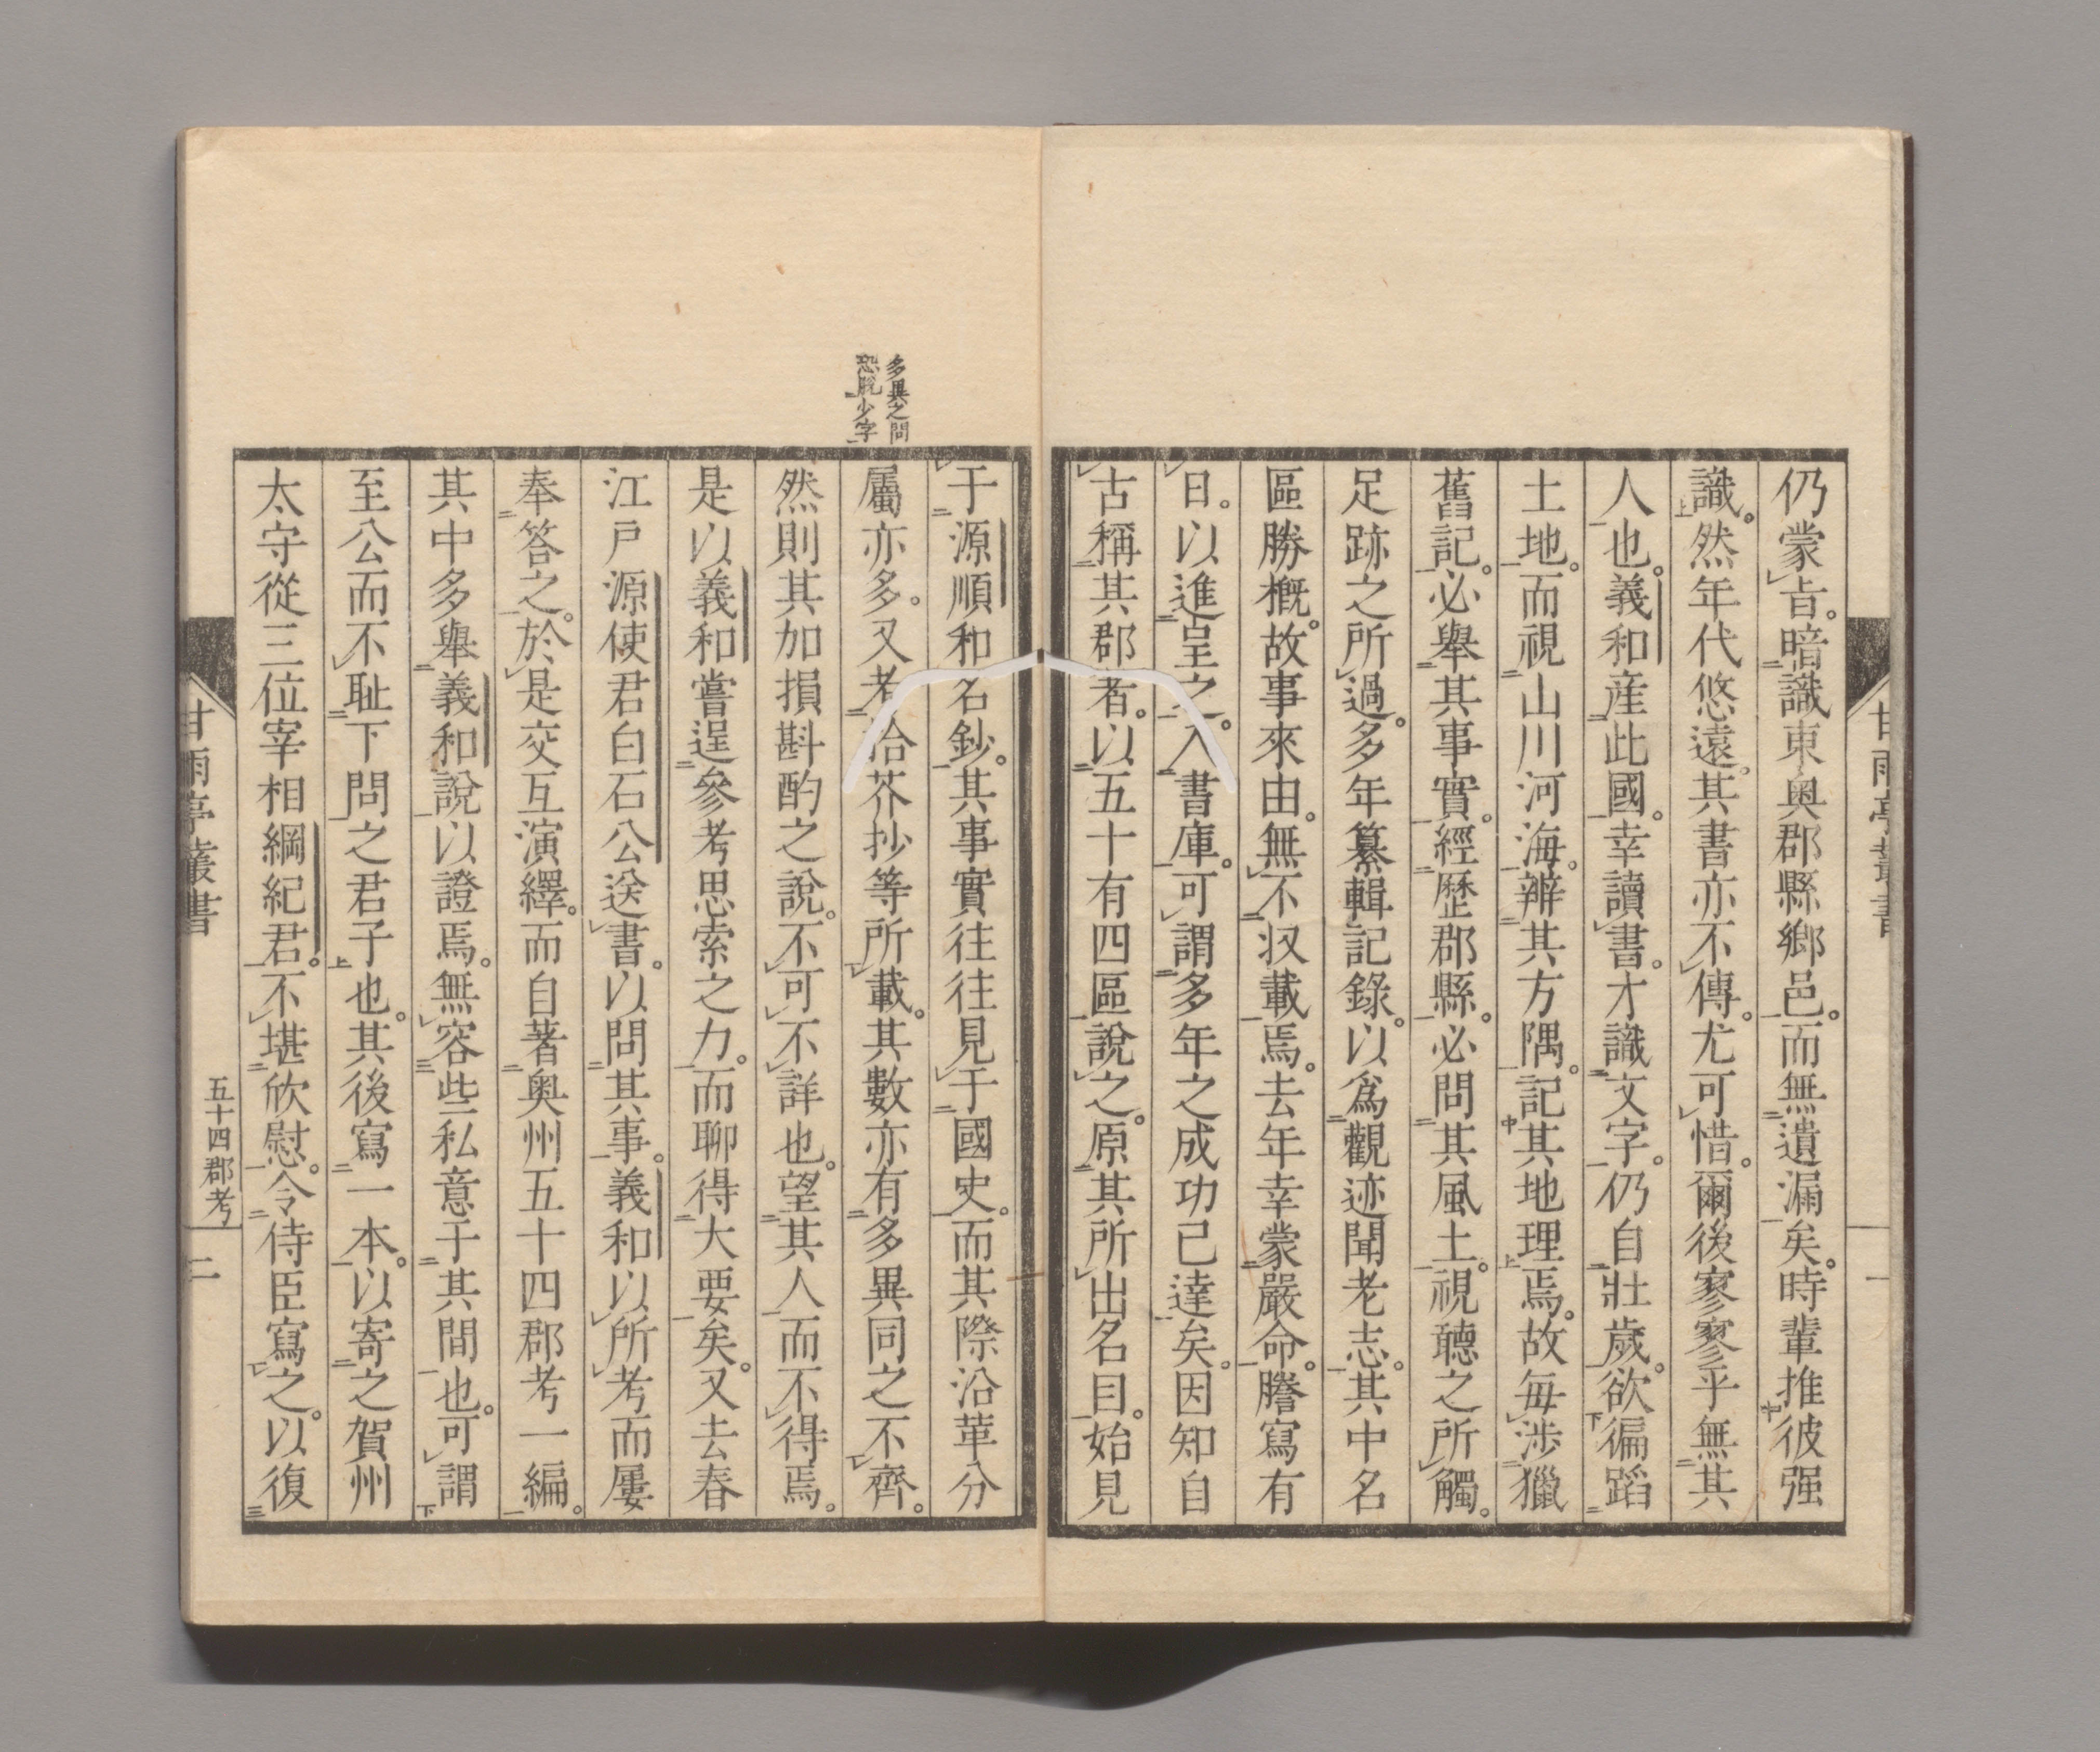 仍蒙旨。暗識東奥郡縣鄉邑。而無遺漏矣。時輩推彼强
識。然年代悠遠。其書亦不傳。尤可惜。爾後寥寥乎無其
人也。義和産此國。幸讀書。才識文字。仍自壯歲。欲徧蹈
土地。而視山川河海。辨其方隅。記其地理焉。故毎涉獵
舊記。必舉其事實。經歴郡縣。必問其風土。視聽之所觸。
足跡之所過。多年纂輯記錄。以爲觀迹聞老志。其中名
區勝概。故事來由。無不収載焉。去年幸蒙嚴命。謄寫有
日。以進呈之。入書庫。可謂多年之成功已達矣。因知自
古稱其郡者。以五十有四區說之。原其所出名目。始見
于源順和名鈔。其事實往往見于國史。而其際沿革分
屬亦多。又考拾芥抄等所載。其數亦有多異同之不齊。
然則其加損斟酌之說。不可不詳也。望其人而不得焉。
是以義和嘗逞參考思索之力。而聊得大要矣。又去春
江戸源使君白石公送書。以問其事。義和以所考而屢
奉答之。於是交互演繹。而自著奥州五十四郡考一編。
其中多舉義和說以證焉。無容些私意于其間也。可謂
至公而不耻下問之君子也。其後寫一本。以寄之賀州
太守從三位宰相綱紀君。不堪欣慰。令侍臣寫之。以復
多異之間
恐脫少字
甘雨亭叢書
一
甘雨亭叢書
五十四郡考
二